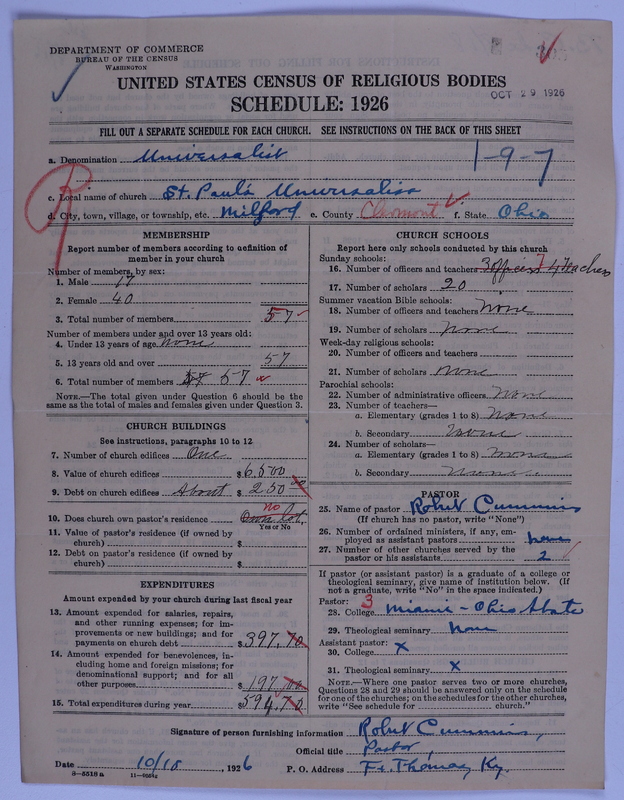 DEPARTMENT OF COMMERCE
BUREAU OF THE CENSUS
WASHINGTON
UNITED STATES CENSUS OF RELIGIOUS BODIES
SCHEDULE: 1926
OCT 29 1926
FILL OUT A SEPARATE SCHEDULE FOR EACH CHURCH. SEE INSTRUCTIONS ON THE BACK OF THIS SHEET
a. Denomination Universalist
1-9-7
c. Local name of church St. Paul's Universalist
d. City, town, village, or township, etc. Milford e. County Clermont f. State Ohio
MEMBERSHIP
Report number of members according to definition of
member in your church
Number of members, by sex:
1. Male 17
2. Female 40
3. Total number of members 57
Number of members under and over 13 years old:
4. Under 13 years of age None
5. 13 years old and over 57
6. Total number of members 57
NOTE.—The total given under Question 6 should be
same as the total of males and females given under Question 3.
CHURCH BUILDINGS
See instructions, paragraphs 10 to 12
7. Number of church edifices One
8. Value of church edifices $6,500
9. Debt on church edifices About $250
10. Does church own pastor's residence no Own lot.
Yes or No
11. Value of pastor's residence (if owned by
church) $
12. Debt on pastor's residence (if owned by
church) $
EXPENDITURES
Amount expended by your church during last fiscal year
13. Amount expended for salaries, repairs,
and other running expenses; for im-
provements or new buildings; and for
payments on church debt $397.70
14. Amount expended for benevolences, in-
cluding home and foreign missions; for
denominational support; and for all
other purposes $197.00
15. Total expenditures during year $594.70
CHURCH SCHOOLS
Report here only schools conducted by this church
Sunday schools:
16. Number of officers and teachers 3 officers 7 4 teachers
17. Number of scholars 20
Summer vacation Bible schools:
18. Number of officers and teachers None
19. Number of scholars None
Week-day religious schools:
20. Number of officers and teachers
21. Number of scholars None
Parochial schools:
22. Number of administrative officers None
23. Number of teachers—
a. Elementary (grades 1 to 8) None
b. Secondary None
24. Number of scholars—
a. Elementary (grades 1 to 8) None
b. Secondary None
PASTOR
25. Name of pastor Robert Cummins
(If church has no pastor, write "None")
26. Number of ordained ministers, if any, em-
ployed as assistant pastors none
27. Number of other churches served by the
pastor or his assistants 2
If pastor (or assistant pastor) is a graduate of a college or
theological seminary, give name of institution below. (If
not a graduate, write "No" in the space indicated.)
Pastor: 3
28. College Miami - Ohio State
29. Theological seminary None
Assistant pastor:
30. College x
31. Theological seminary x
NOTE.—Where one pastor serves two or more churches,
Questions 28 and 29 should be answered only on the schedule
for one of the churches; on the schedules for the other churches,
write "See schedule for church."
Signature of person furnishing information Robert Cummins,
Official title Pastor,
Date 10/18, 1926 P. O. Address Ft. Thomas, Ky.
8—5518a 11—9264